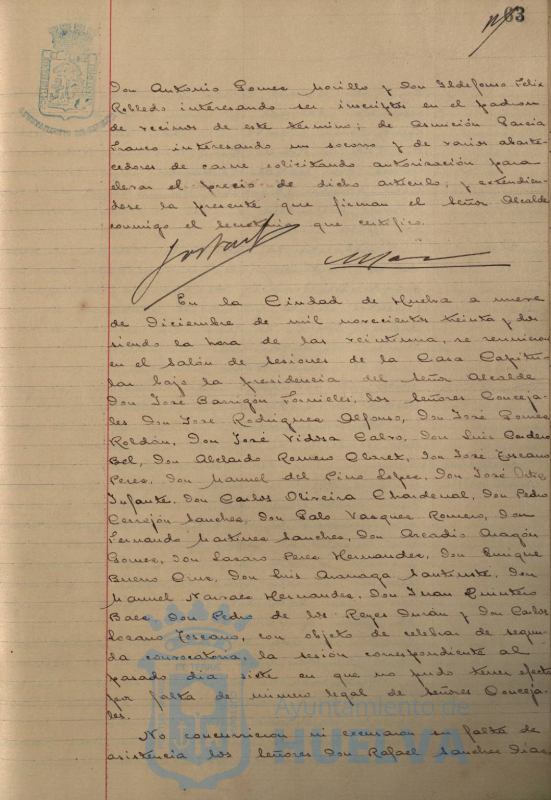 83
Don Antonio Gomez Morillo y Don Ildefonso Felix
Robledo interesando ser inscriptos en el padron
de vecinos de este termino; de Asunción Garcia
Franco interesando un socorro y de varios abaste-
cedores de carne solicitando autorización para
elevar el precio de dicho articulo, y extendien-
dose la presente que firman el Señor Alcalde
conmigo el Secretario que certifico.
En la Ciudad de Huelva a nueve
de Diciembre de mil novecientos treinta y dos
siendo la hora de las veintiuna, se reunieron
en el Salón de sesiones de la Casa Capitu-
lar bajo la presidencia del Señor Alcalde
Don José Barrigón Fornieles, los Señores Conceja-
les Don José Rodriguez Alfonso, Don José Gomez
Roldán, Don José Vidosa Calvo, Don Luis Cordero
Bel, Don Abelardo Romero Claret, Don José Toscano
Perez, Don Manuel del Pino Lopez, Don José Ortiz
Infante, Don Carlos Oliveira Chardenal, Don Pedro
Cerrejón Sanchez, Don Pablo Vasquez Romero, Don
Fernando Martinez Sanchez, Don Arcadio Aragón
Gomez, Don Lazaro Perez Hernandez, Don Enrique
Bueno Cruz, Don Luis Aramaga Santiuste, Don
Manuel Narvaez Hernandez, Don Juan Quintero
Baez, Don Pedro de los Reyes Durán y Don Carlos
Lozano Toscano, con objeto de celebrar de segun-
da convocatoria, la sesión correspondiente al
pasado dia siete en que no pudo tener efecto
por falta de número legal de Señores Conceja-
les.
No concurrieron ni excusaron su falta de
asistencia los Señores Don Rafael Sanchez Diaz,
Ayuntamiento de
HUELVA